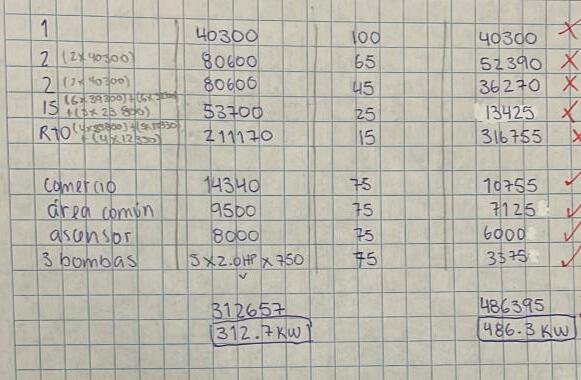 1 40300 100 40300 ×
2 (2x40300) 80600 65 52390 ×
2 (2x40300) 80600 45 36270 ×
15 (6x39300)+(6x + (3x23800) 53700 25 13425 ×
RTO + (4x12330) 211170 15 316755 ×
comercio 14340 75 10755 ✓
área común 9500 75 7125 ✓
ascensor 8000 75 6000 ✓
3 bombas 3x2.0HPx750 75 3375 ✓
312657 486395
312.7 KW 486.3 KW